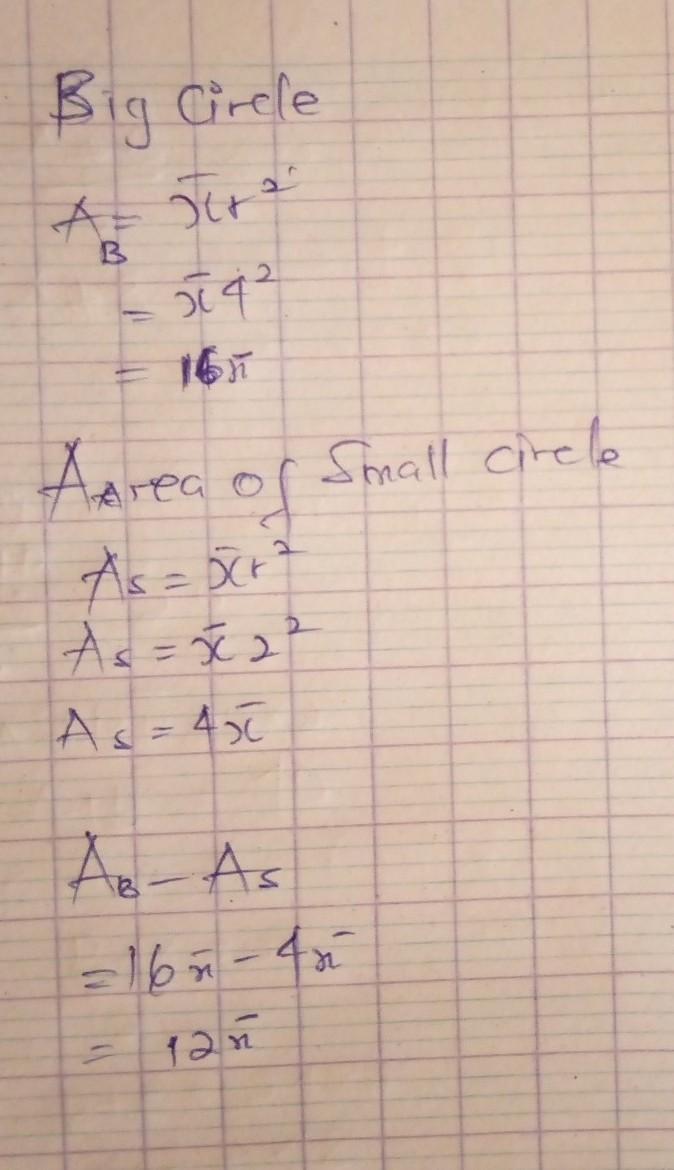 Big Circle
A_B = πr²
= π4²
= 16π
AArea of Small circle
A_S = πr²
A_S = π2²
A_S = 4π
A_B - A_S
= 16π - 4π
= 12π